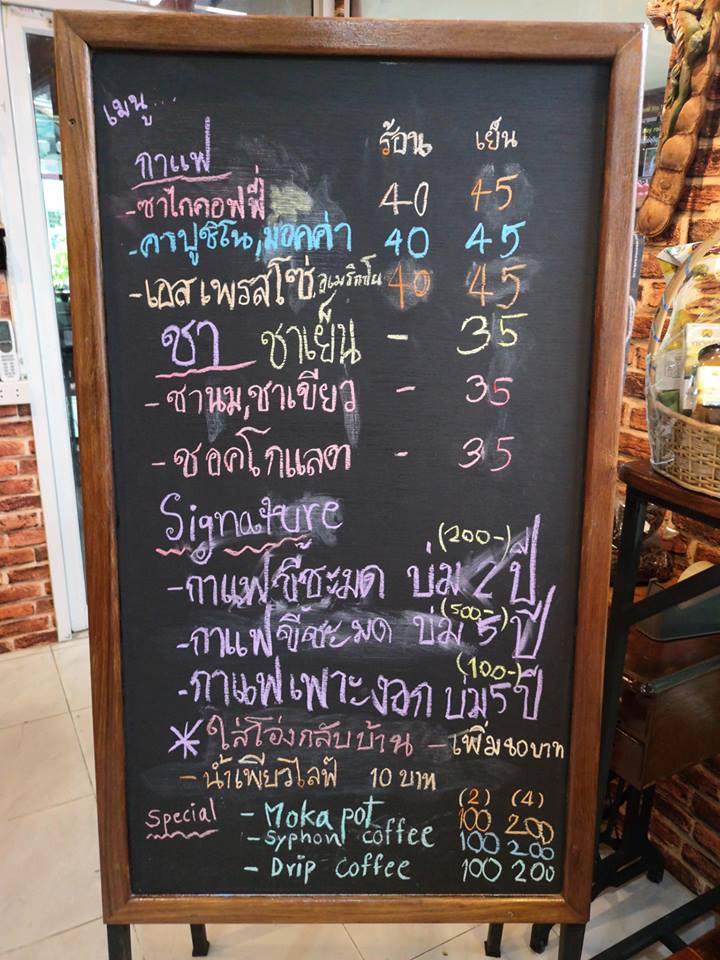 เมนู...
ร้อน เย็น
กาแฟ
-ซาไกคอฟฟี่ 40 45
-คาปูชิโน,มอคค่า 40 45
-เอสเพรสโซ่,อเมริกาโน 40 45
ชา ชาเย็น - 35
-ชานม,ชาเขียว - 35
-ชอคโกแลต - 35
Signature
(200-)
-กาแฟขี้ชะมด บ่ม 2 ปี
(500-)
-กาแฟขี้ชะมด บ่ม 5 ปี
(100-)
-กาแฟเพาะงอก บ่ม 5 ปี
*ใส่โอ่งกลับบ้าน - เพิ่ม 80 บาท
-น้ำเพียวไลฟ์ 10 บาท
(2) (4)
Special - Moka pot 100 200
-Syphon coffee 100 200
- Drip coffee 100 200